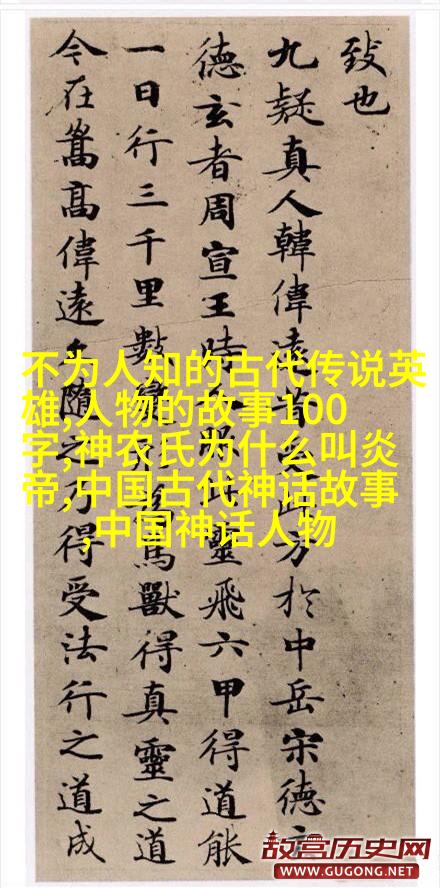 致也
九疑真人韓偉遠昔受此方於中岳宋德玄
德玄者周宣王時此靈飛六甲得道能
一日行三千里數變形為鳥獸得真靈之道
今在嵩高偉遠久隨之乃得受法行之道成
不为人知的古代传说英
雄,人物的故事100
字,神农氏为什么叫炎
帝,中国古代神话故事
,中国神话人物
故宫历史网
WWW.GUGONG.NET